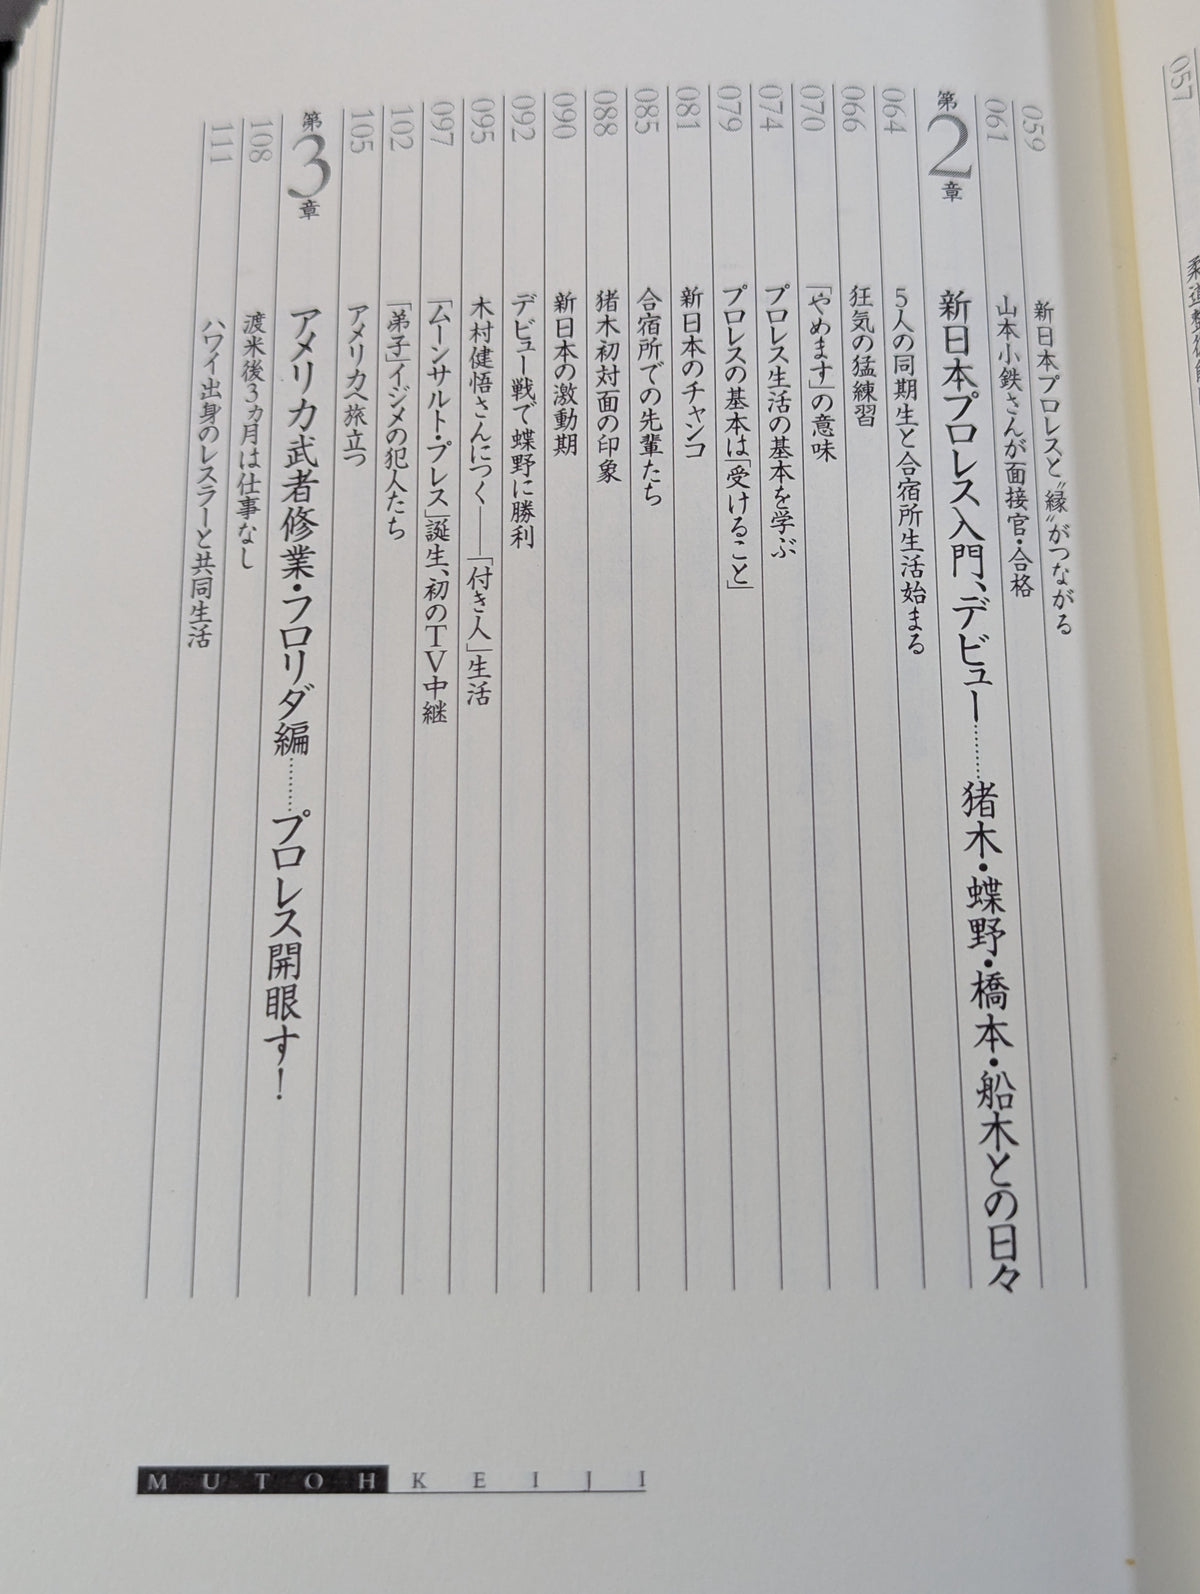 057
059 新日本プロレスと〝縁〟がつながる
061 山本小鉄さんが面接官・合格
第2章 新日本プロレス入門、デビュー………猪木・蝶野・橋本・船木との日々
064 5人の同期生と合宿所生活始まる
066 狂気の猛練習
070 「やめます」の意味
074 プロレス生活の基本を学ぶ
079 プロレスの基本は「受けること」
081 新日本のチャンコ
085 合宿所での先輩たち
088 猪木初対面の印象
090 新日本の激動期
092 デビュー戦で蝶野に勝利
095 木村健悟さんにつく——「付き人」生活
097 「ムーンサルト・プレス」誕生、初のTV中継
102 「弟子」イジメの犯人たち
105 アメリカへ旅立つ
第3章 アメリカ武者修業・フロリダ編………プロレス開眼す!
108 渡米後3ヵ月は仕事なし
111 ハワイ出身のレスラーと共同生活
MUTOH KEIJI